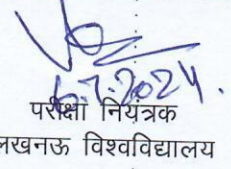 6.7.2024.
परीक्षा नियंत्रक
लखनऊ विश्वविद्यालय